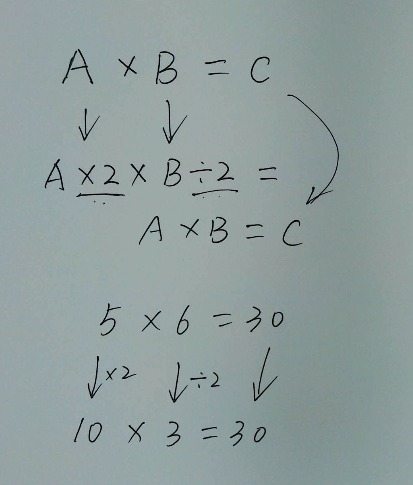 A × B = C
A ×2 × B ÷2 =
A × B = C
5 × 6 = 30
×2 ÷2
10 × 3 = 30